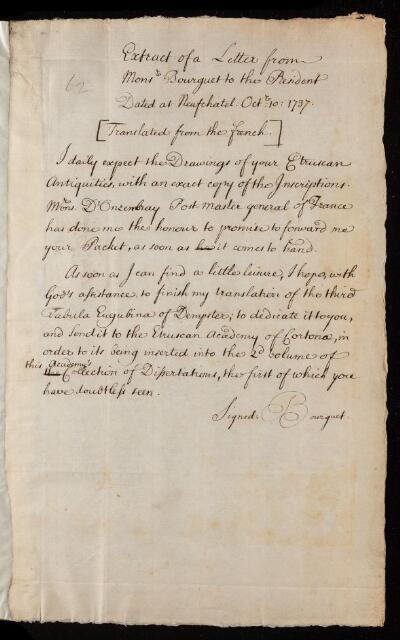 62
Extract of a Letter from
Monsr. Bourguet to the President
Dated at Neufchatel. Octr. 10: 1737.
[Translated from the french.]
I daily expect the Drawings of your Etruscan
Antiquities, with an exact copy of the Inscriptions.
Mons. D'Onzembray Post-master general of France
has done me the honour to promise to forward me
your Packet, as soon as it comes to hand.
As soon as I can find a little leisure, I hope, with
God's assistance, to finish my translation of the third
Tabula Eugubina of Dempster; to dedicate it to you,
and send it to the Etruscan Academy of Cortona, in
order to its being inserted into the 2d volume of
this Academy's
the Collection of Dissertations, the first of which you
have doubtless seen.
Signed. Bourguet.